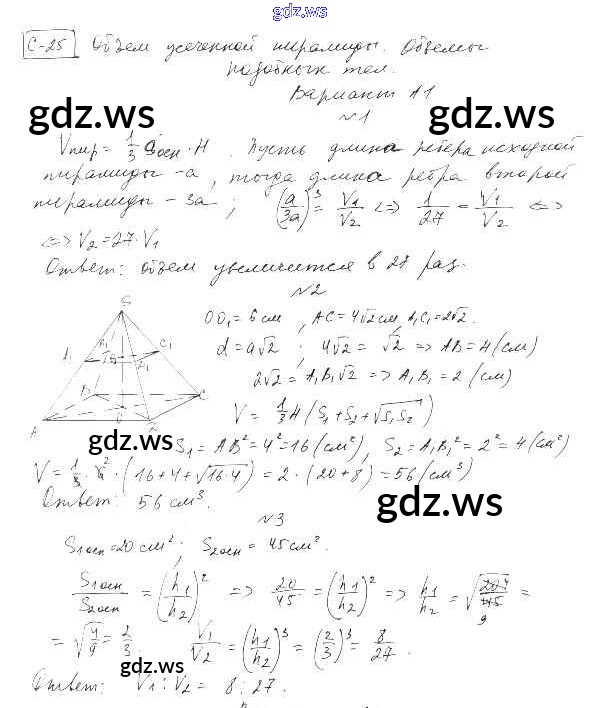 gdz.ws
С-25 Объем усеченной пирамиды. Объемы
подобных тел.
Вариант А1
gdz.ws gdz.ws
№1
Vпир = 1/3 Sосн · H. Пусть длина ребра исходной
пирамиды - a, тогда длина ребра второй
пирамиды - 3a; (a/3a)³ = V₁/V₂ <=> 1/27 = V₁/V₂ <=>
<=> V₂ = 27·V₁
Ответ: объем увеличится в 27 раз.
№2
S
A₁ B₁ C₁ O₁ D₁
A B C O
OO₁ = 6 см, AC = 4√2 см A₁C₁ = 2√2.
d = a√2; 4√2 = √2 => AB = 4 (см)
2√2 = A₁B₁√2 => A₁B₁ = 2 (см)
V = 1/3 H (S₁ + S₂ + √S₁S₂)
gdz.ws
S₁ = AB² = 4² = 16 (см²), S₂ = A₁B₁² = 2² = 4 (см²)
V = 1/3 · 6² · (16 + 4 + √16·4) = 2 · (20 + 8) = 56 (см³)
Ответ: 56 см³.
gdz.ws
№3
S1осн = 20 см²; S2осн = 45 см².
S1осн/S2осн = (h₁/h₂)² => 20/45 = (h₁/h₂)² => h₁/h₂ = √20 4/45 9 =
= √4/9 = 2/3. V₁/V₂ = (h₁/h₂)³ = (2/3)³ = 8/27.
gdz.ws gdz.ws
Ответ: V₁ : V₂ = 8 : 27.